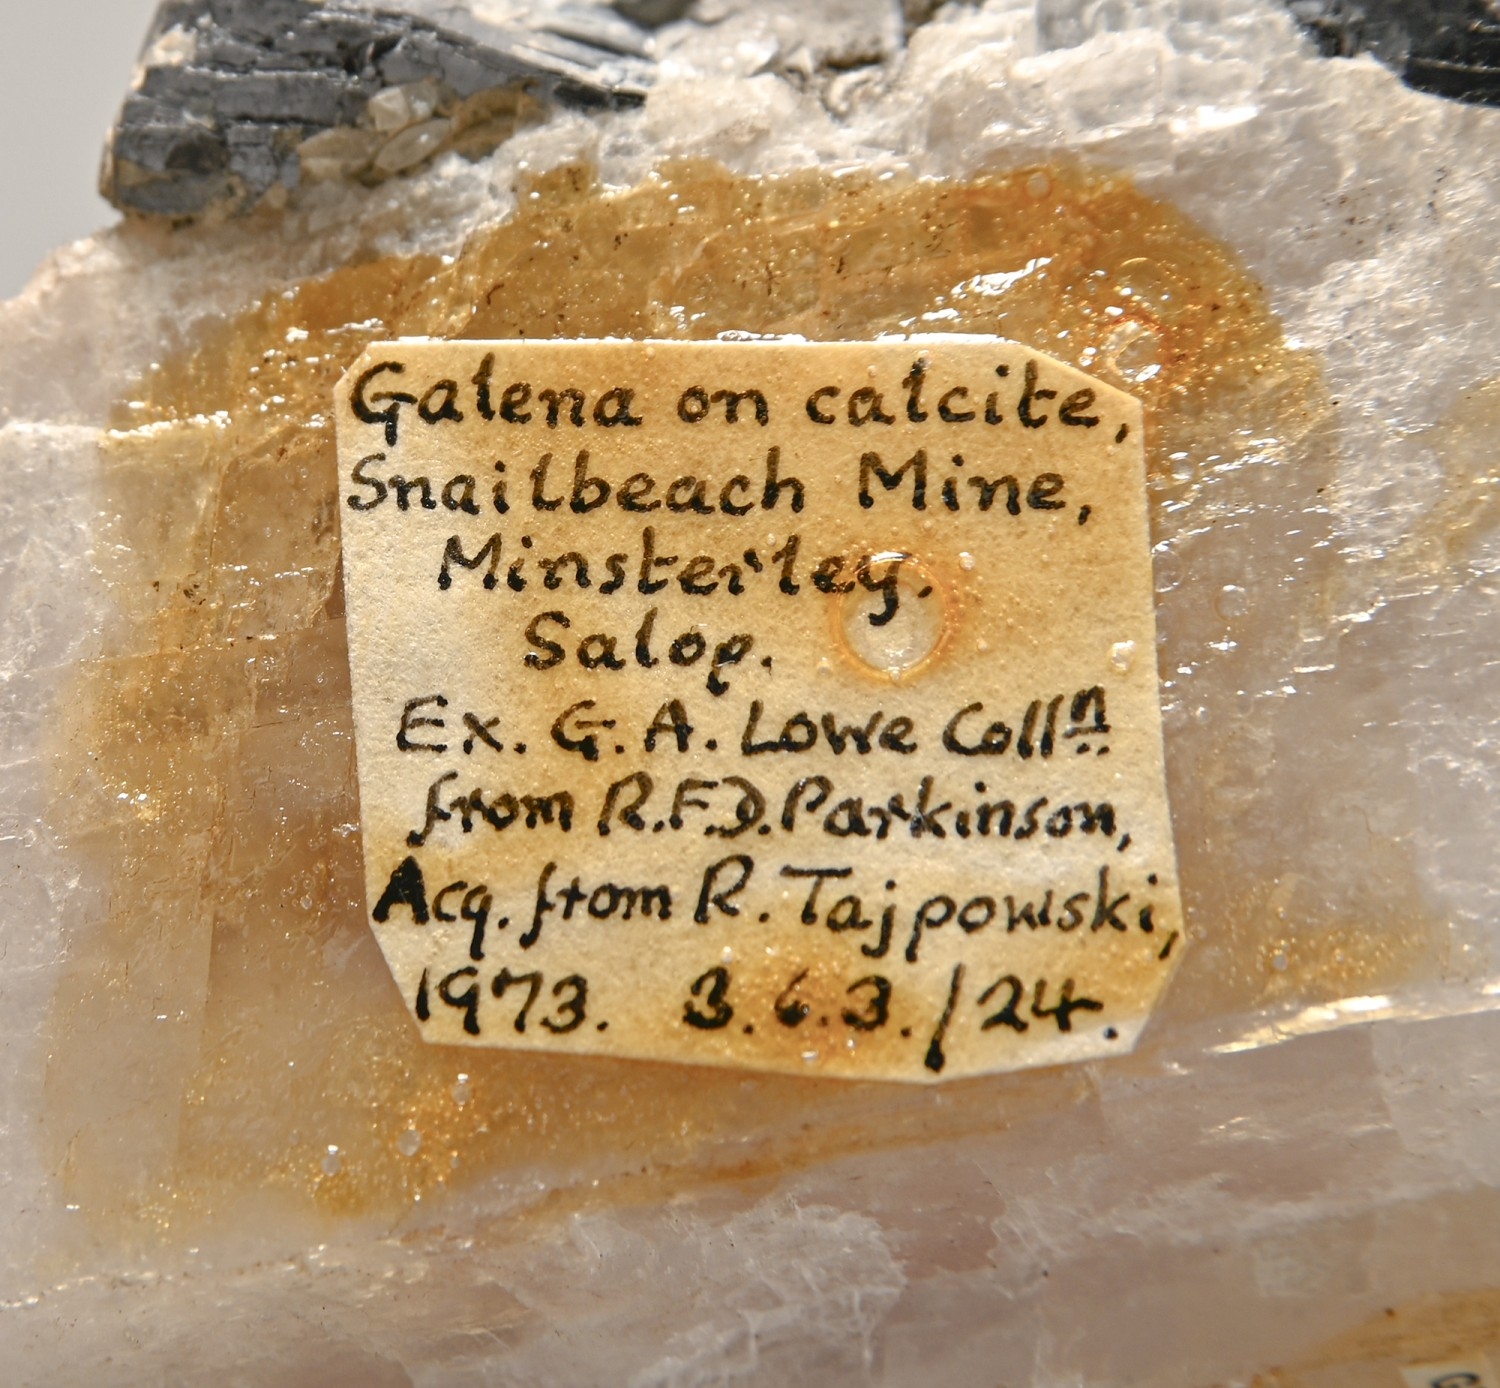 Galena on calcite,
Snailbeach Mine,
Minsterley.
Salop.
Ex. G. A. Lowe Collⁿ
from R.F.D. Parkinson,
Acq. from R. Tajpowski,
1973. 3.6.3./24.